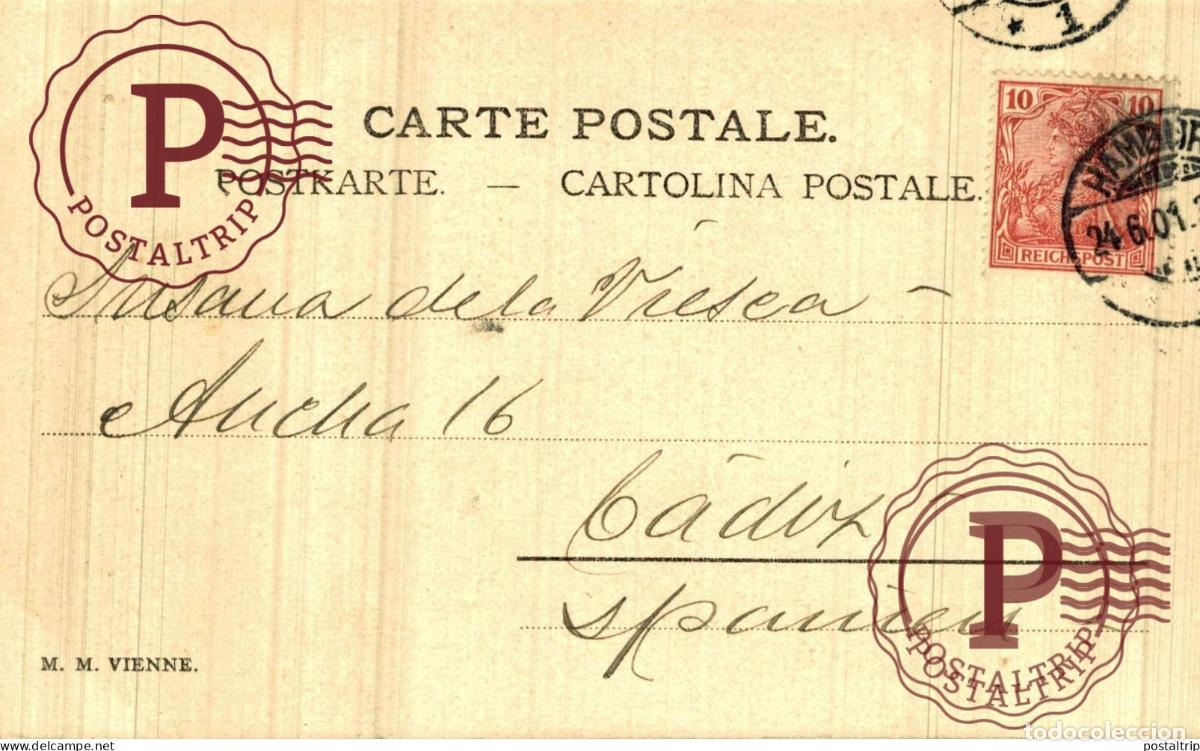 1
CARTE POSTALE.
POSTKARTE. — CARTOLINA POSTALE.
10 10
REICHSPOST
HAMBUR
24.6.01.
P
POSTALTRIP
Susana de la Viesca –
Ancha 16
Cádiz
Spanien
M. M. VIENNE.
P
POSTALTRIP
POSTALTRIP
todocoleccion
www.delcampe.net
postaltrip